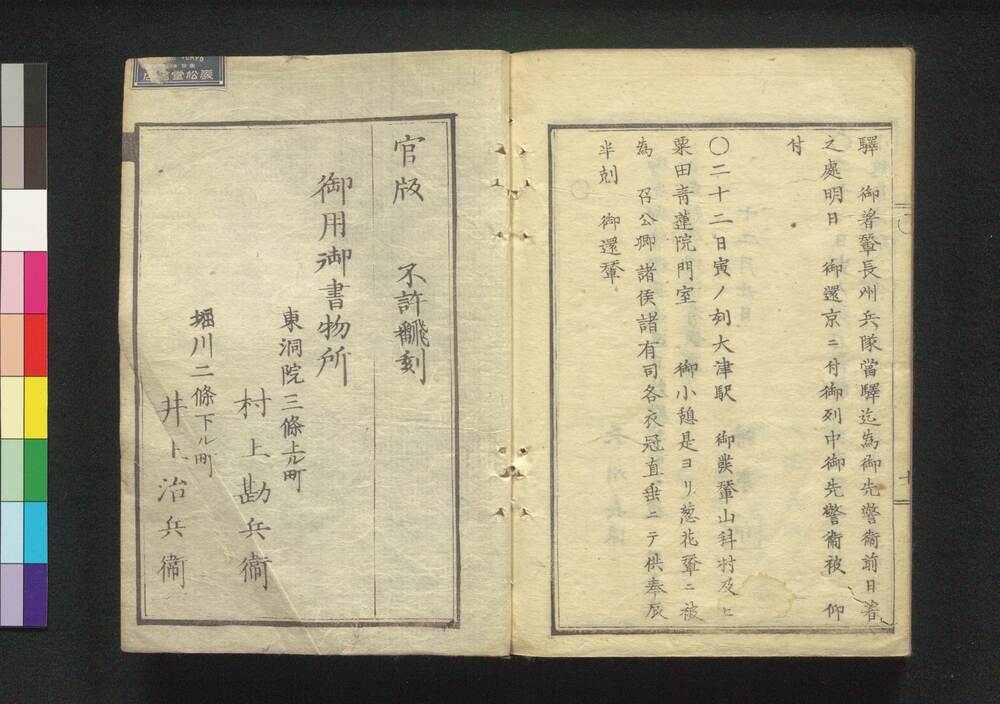 驛 御着輦長州兵隊當驛迄為御先警衛前日着
之處明日 御還京ニ付御列中御先警衛被 仰
付
〇二十二日寅ノ刻大津駅 御発輦山科村及ヒ
粟田青蓮院門室 御小憩是ヨリ葱花輦ニ被
為 召公卿諸侯諸有司各衣冠直垂ニテ供奉辰
半剋 御還輦
十
官版 不許飜刻
御用御書物所
東洞院三條上ル町
村上勘兵衞
堀川二條下ル町
井上治兵衞
巖松堂